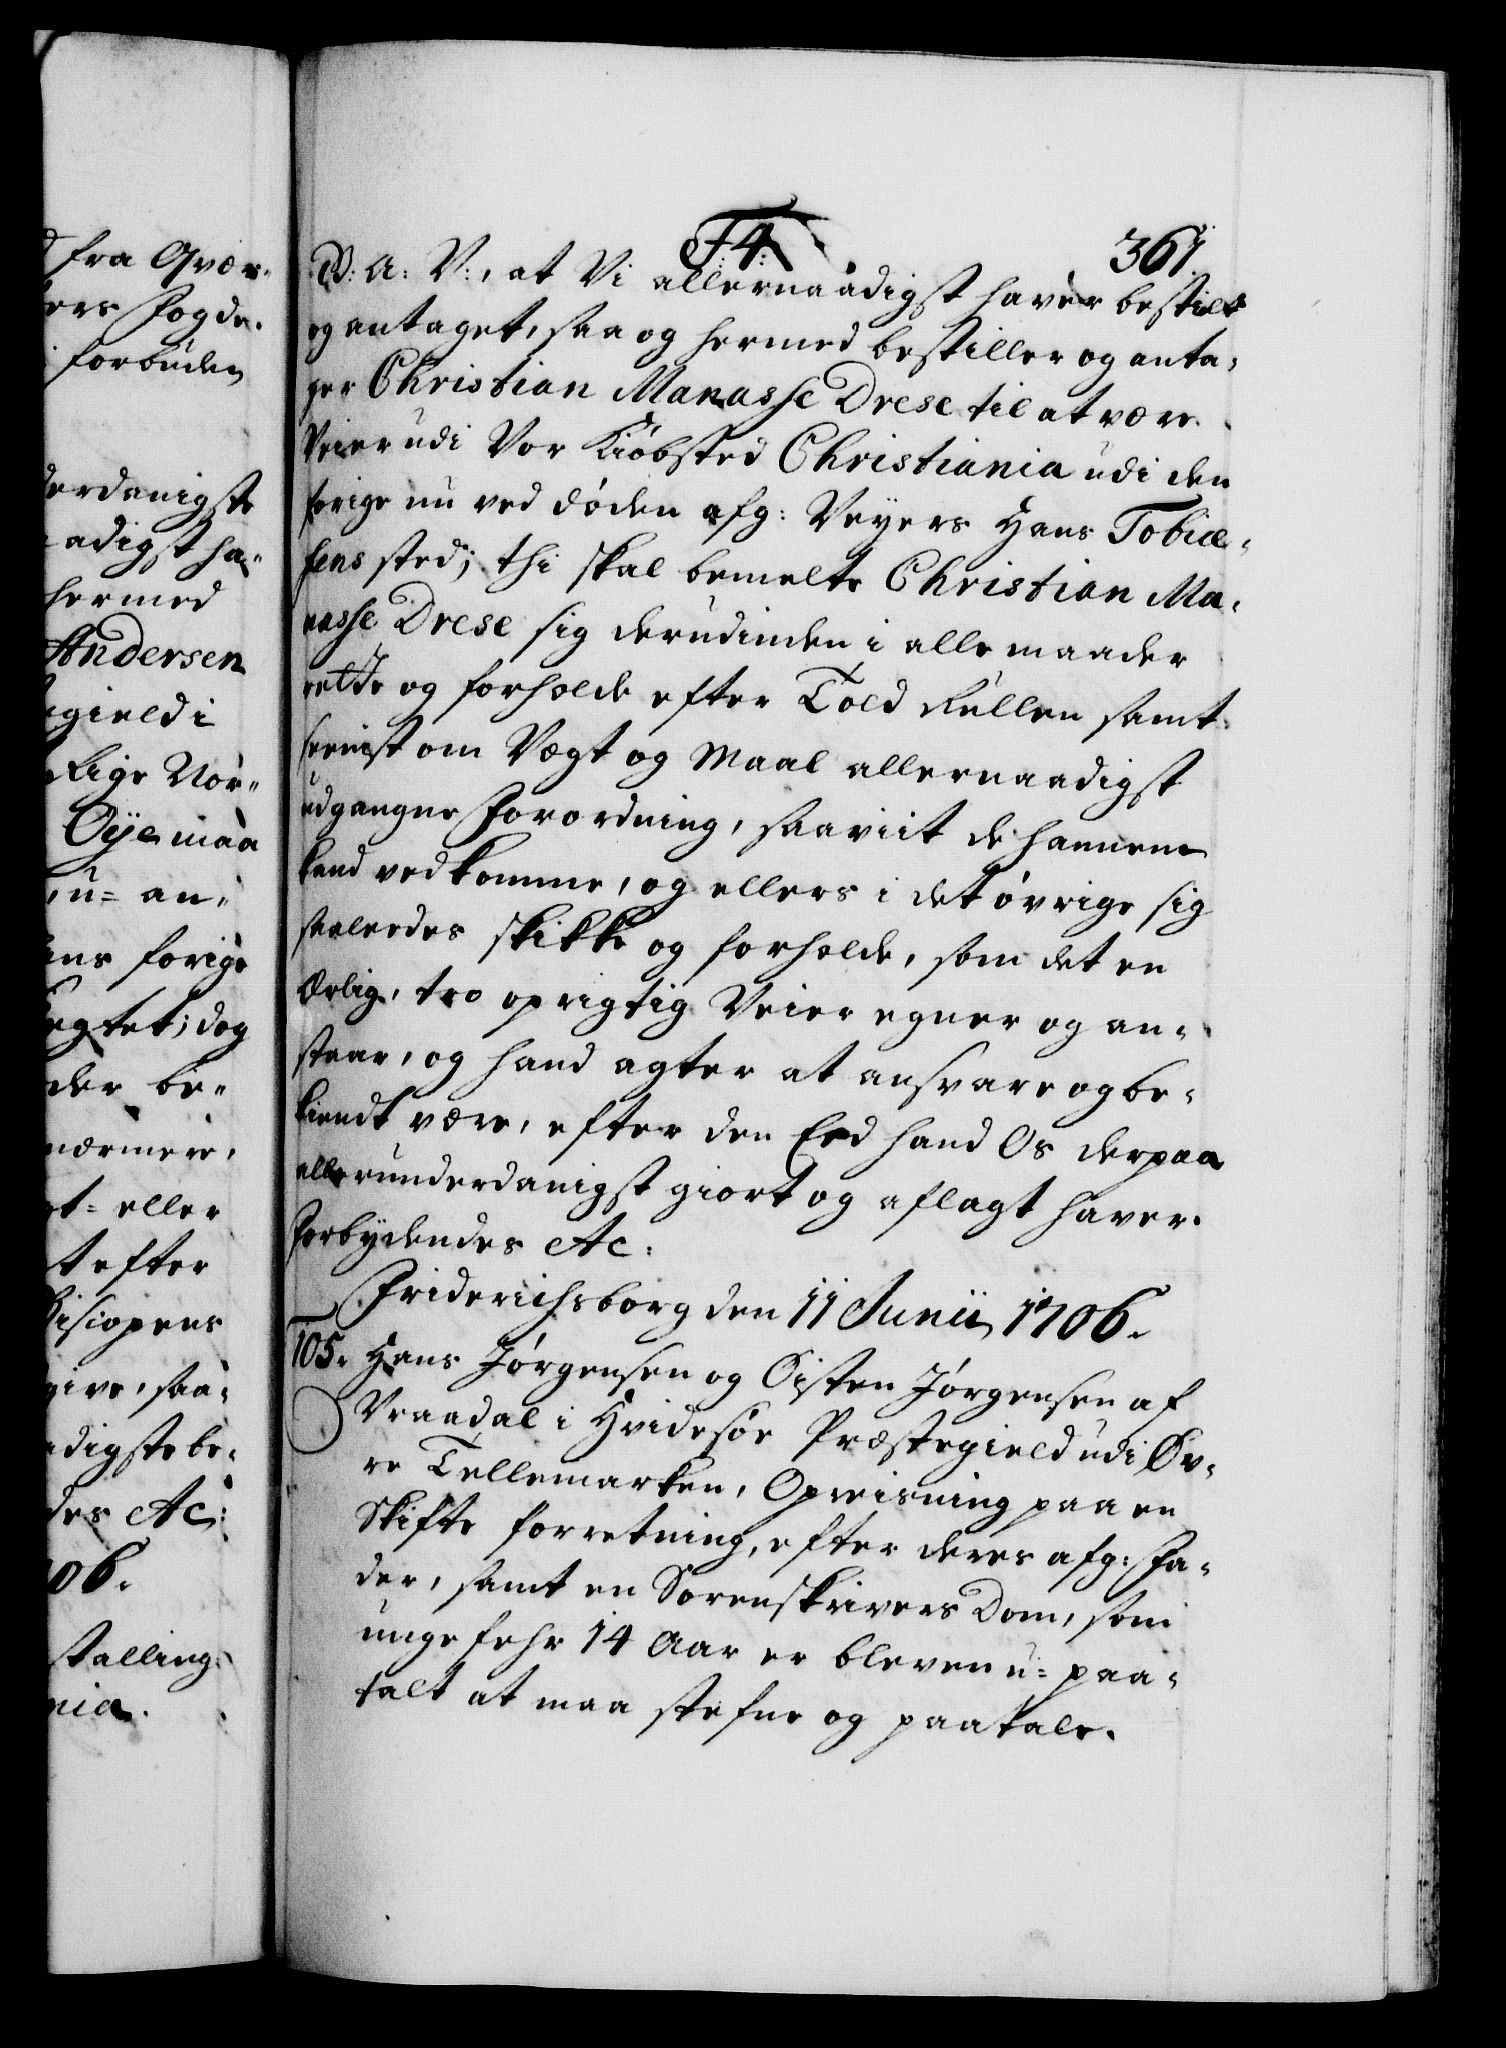 fra Qvær-
ers Fogde-
forbuden
derdanigste
adigst ha-
hermed
Andersen
egield i
Rige Nor-
Öye maa
u= an-
ens forige
egtet; dog
der be-
nærmere,
et= eller
t efter
Biscopens
give, saa-
adigste be-
des Ac:
06.
stalling
nia.
F4. 361
V: A: V:, at Vi allernaadigst haver bestilt
og antaget, saa og hermed bestiller og anta-
ger Christian Manasse Drese til at være
Veier udi Vor Kiöbsted Christiania udi den
forige nu ved döden afg: Veyers Hans Tobiæ-
sens sted; thi skal bemelte Christian Ma-
nasse Drese sig derudinden i alle maader
rette og forholde efter Told Rullen samt
seenist om Vægt og Maal allernaadigst
udgangne Forordning, saaviit de hannem
kand vedkomme, og ellers i det övrige sig
saaledes skikke og forholde, som det en
Ærlig, tro oprigtig Veier egner og an-
staar, og hand agter at ansvare og be-
kiendt være, efter den Eed hand Os derpaa
allerunderdanigst giort og aflagt haver.
Forbydendes Ac:
Friderichsborg den 11 Junii 1706.
105. Hans Jörgensen og Östen Jörgensen af
Vraadal i Hvidesöe Præstegield udi Öv-
re Tellemarken, Opreisning paa en
Skifte forretning, efter deres afg: Fa-
der, samt en Sorenskrivers Dom, som
ungefehr 14 Aar er bleven u= paa-
talt at maa stefne og paatale.